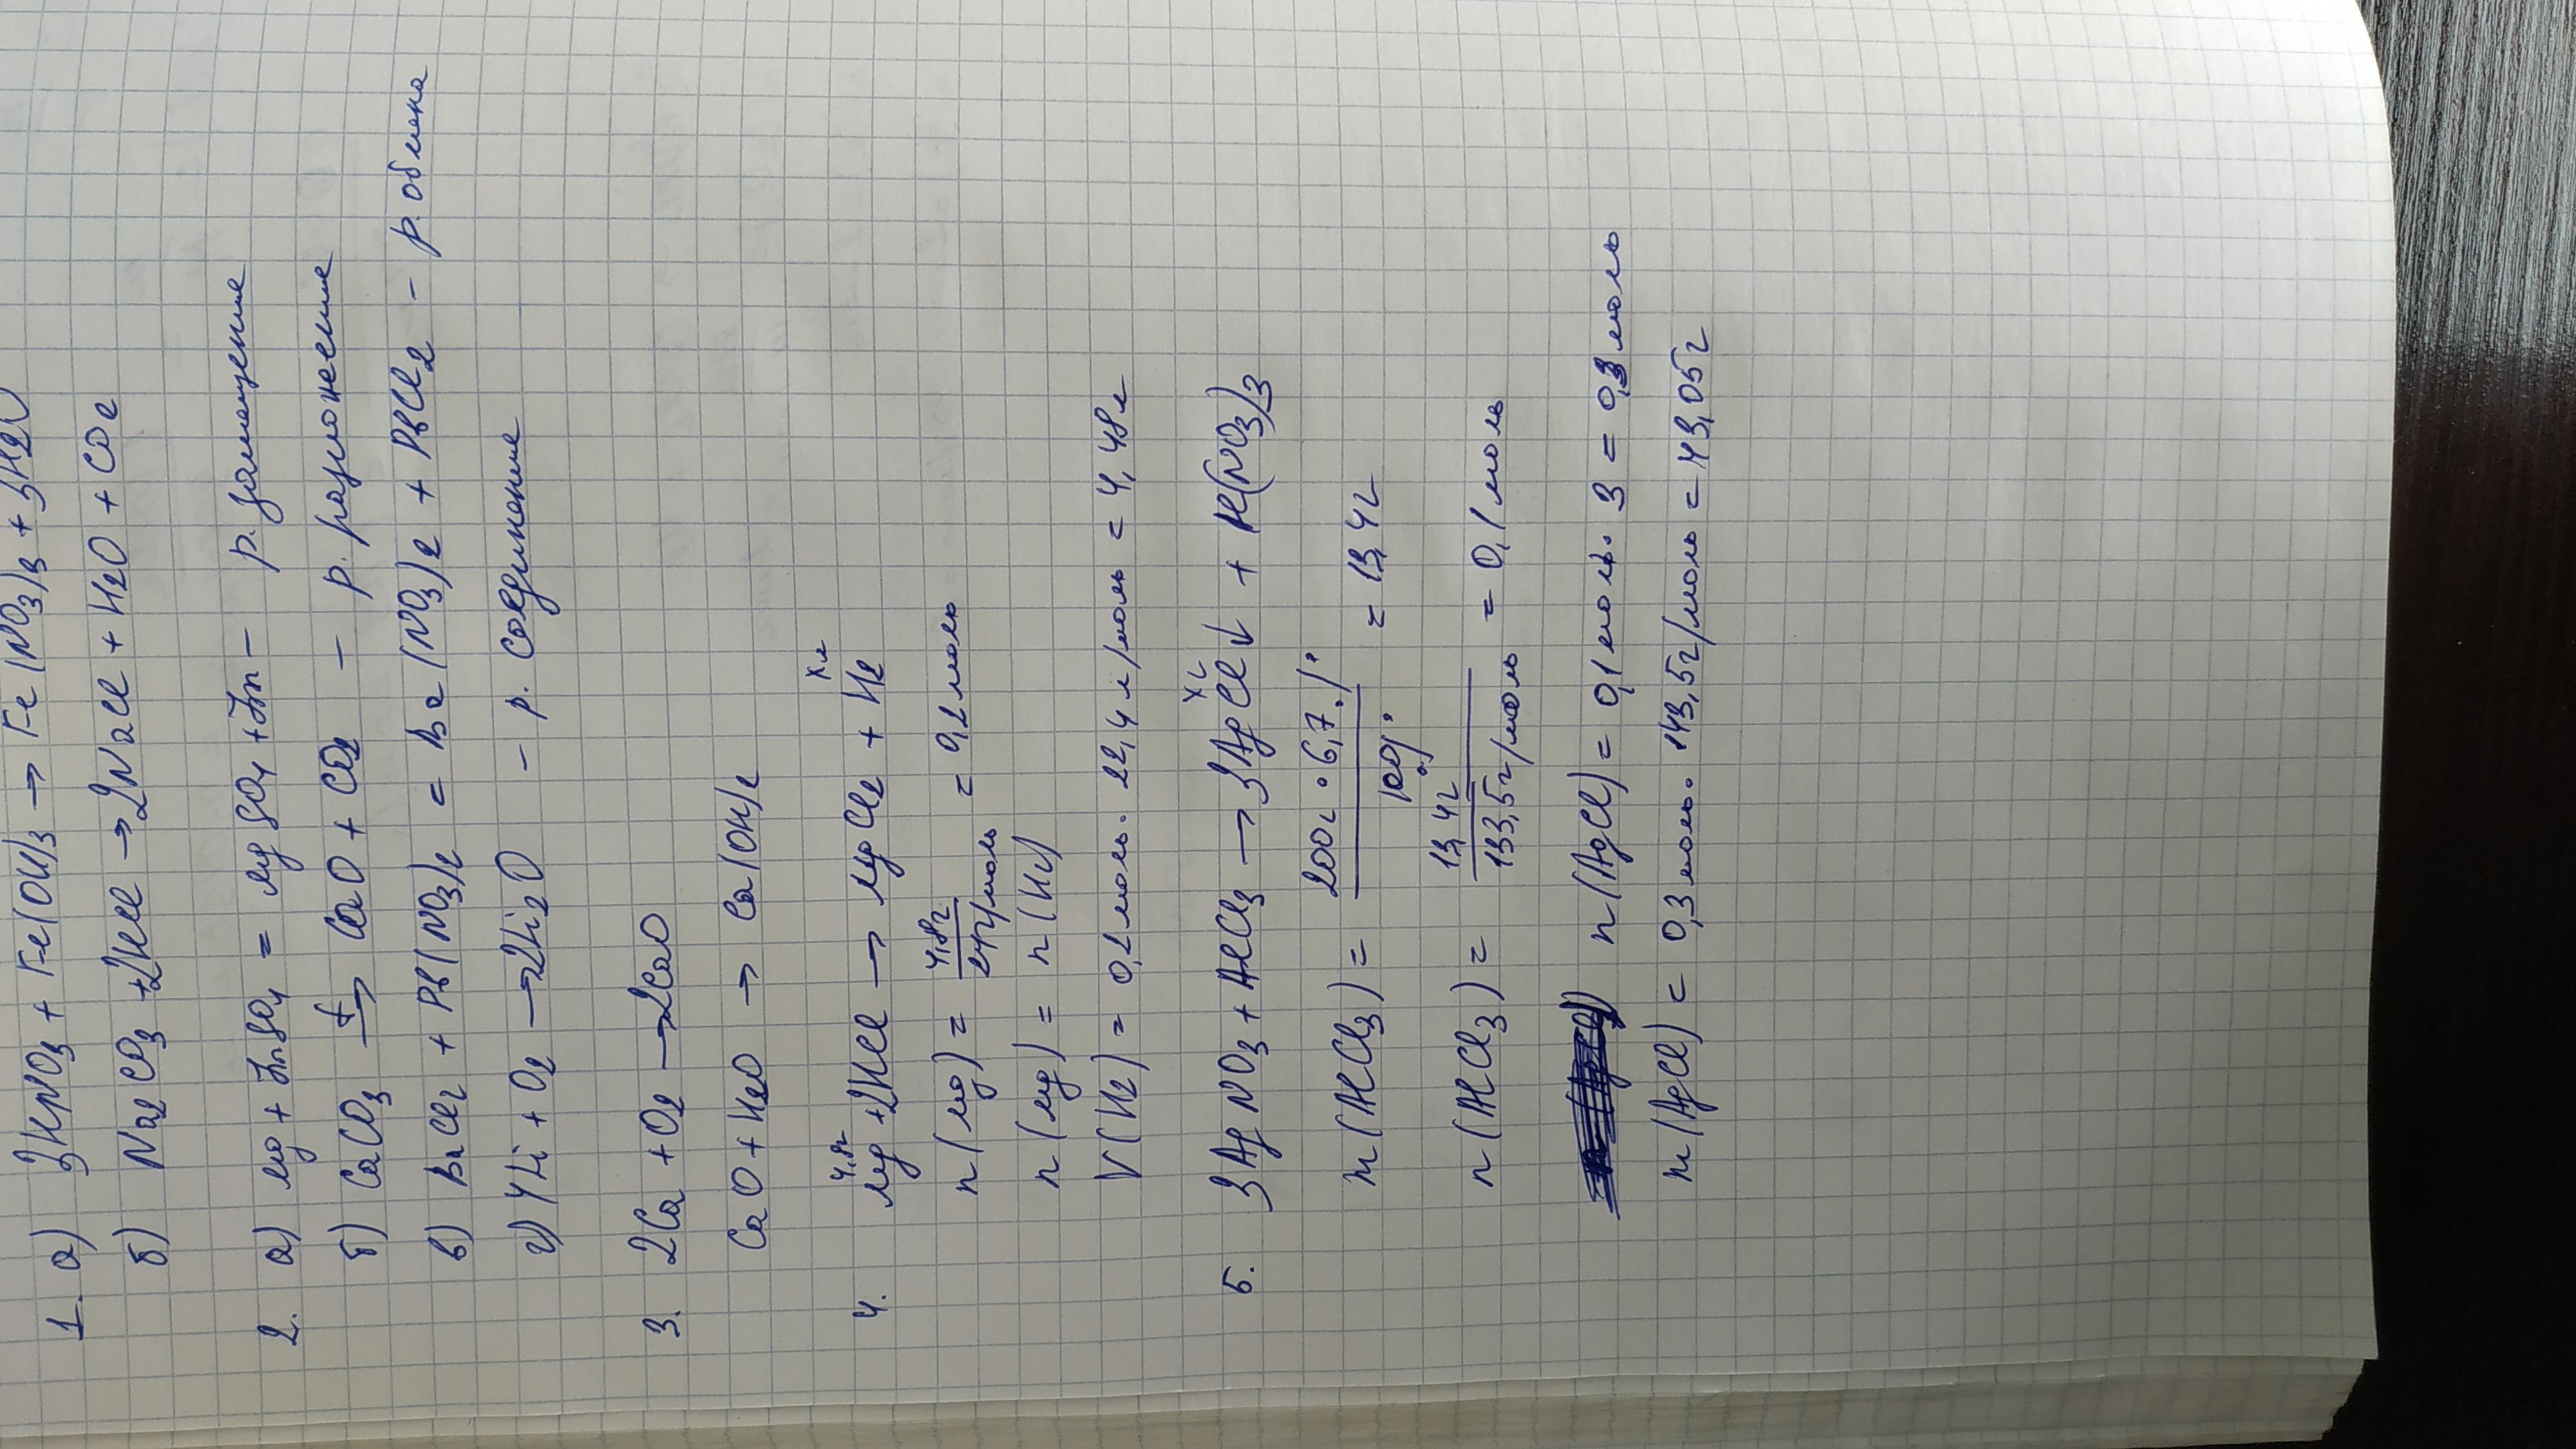 1. а) 3HNO3 + Fe(OH)3 → Fe(NO3)3 + 3H2O
б) Na2CO3 + 2HCl → 2NaCl + H2O + CO2
2. а) Mg + ZnSO4 = MgSO4 + Zn – р. замещение
б) CaCO3 t→ CaO + CO2 – р. разложение
в) BaCl2 + Pb(NO3)2 = Ba(NO3)2 + PbCl2 – р. обмена
г) 4Li + O2 → 2Li2O – р. соединение
3. 2Ca + O2 → 2CaO
CaO + H2O → Ca(OH)2
4,8г хл
4. Mg + 2HCl → MgCl2 + H2
n(Mg) = 4,8г / 24г/моль = 0,2 моль
n(Mg) = n(H2)
V(H2) = 0,2 моль · 22,4 л/моль = 4,48л
хг
5. 3AgNO3 + AlCl3 → 3AgCl↓ + Al(NO3)3
m(AlCl3) = 200г · 6,7% / 100% = 13,4г
n(AlCl3) = 13,4г / 133,5г/моль = 0,1 моль
n(AgCl) = 0,1 моль · 3 = 0,3 моль
m(AgCl) = 0,3 моль · 143,5г/моль = 43,05г